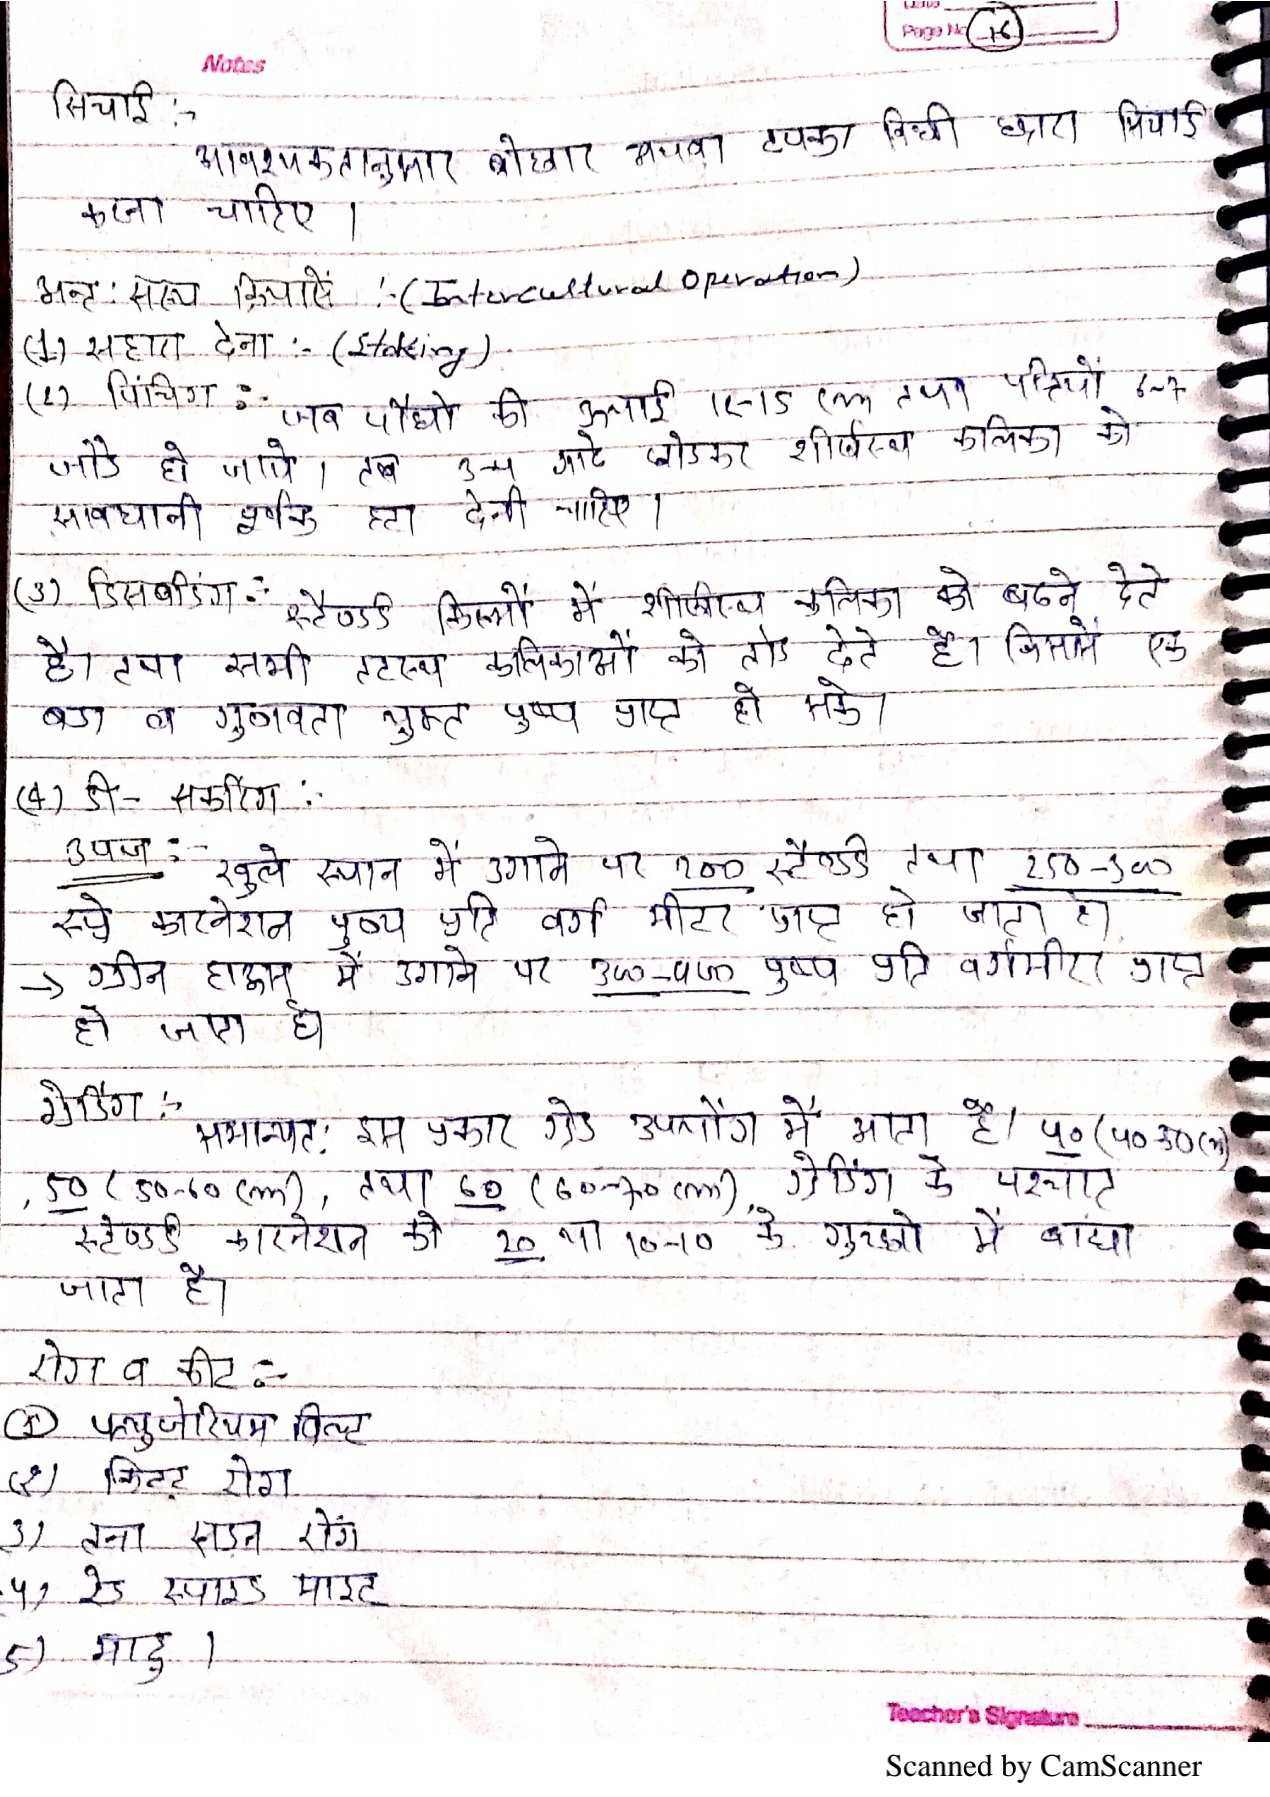 Date
Page No 76
Notes
सिचाई :-
आवश्यकतानुसार बोछार अथवा टपका विधी द्वारा सिचाई
करना चाहिए ।
अन्त: सस्य क्रियाऐं :- (Intercultural Operation)
(1) सहारा देना :- (Staking)
(2) पिंचिंग :- जब पौधो की ऊचाई 12-15 cm तथा पत्तियों 6-7
जोडे हो जाये । तब 3-4 गाटे छोडकर शीर्षस्थ कलिका को
सावधानी पूर्वक हटा देनी चाहिए ।
(3) डिसबडिंग :- स्टैण्डर्ड किस्मों में शीर्षस्थ कलिका को बढने देते
है। तथा सभी तटस्थ कलिकाओं को तोड देते है। जिसमें एक
बडा व गुणवता युक्त पुष्प प्राप्त हो सके।
(4) डी- सकरिंग :-
उपज :- खुले स्थान में उगाने पर 200 स्टैण्डर्ड तथा 250-300
स्प्रे कारनेशन पुष्प प्रति वर्ग मीटर प्राप्त हो जाता है।
→ ग्रीन हाऊस में उगाने पर 300-400 पुष्प प्रति वर्गमीटर प्राप्त
हो जाता है।
ग्रेडिंग :-
समान्यत: इस प्रकार ग्रेड उपयोग में आता है। 40 (40-50 cm)
, 50 (50-60 cm), तथा 60 (60-70 cm), ग्रेडिंग के पश्चात
स्टेण्डर्ड कारनेशन को 20 या 10-10 के गुच्छो में बांधा
जाता है।
रोग व कीट :-
(1) फ्युजेरियम विल्ट
(2) किटट रोग
3) तना सडन रोग
4) रेड स्पाइड माइट
5) माहु ।
Teacher's Signature
Scanned by CamScanner